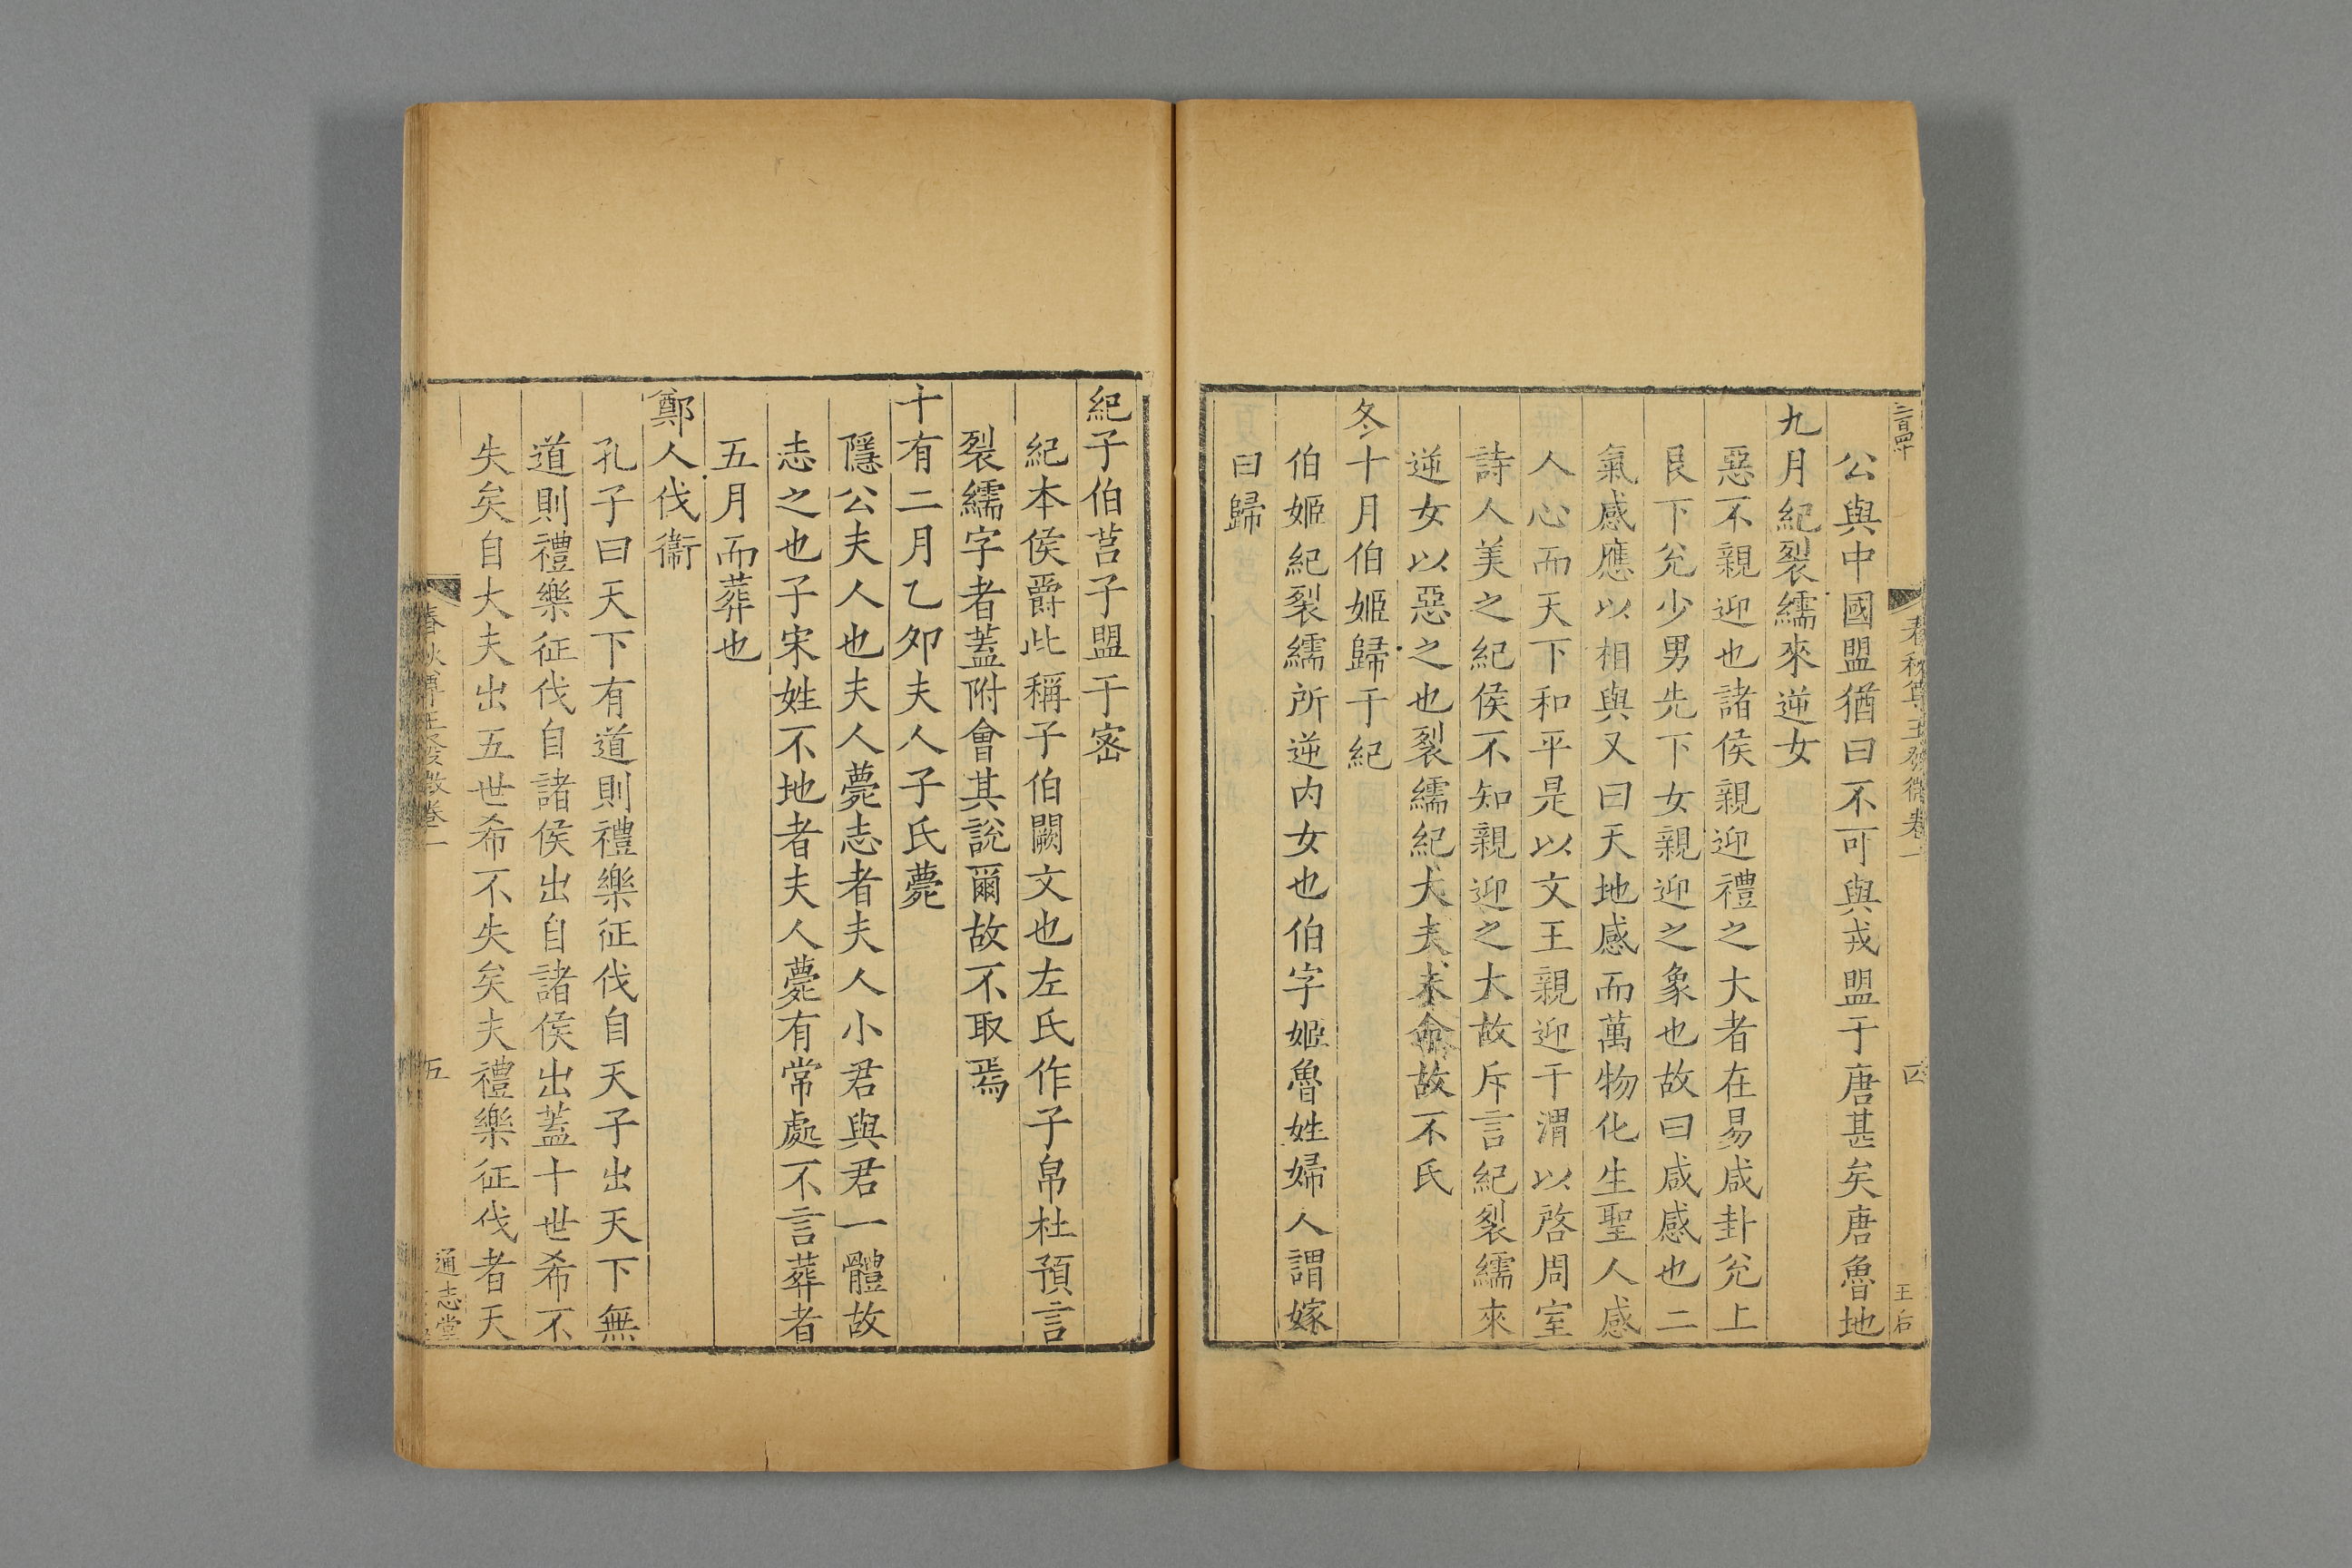 二百四十
春秋尊王發微卷一
四
王后
公與中國盟猶曰不可與戎盟于唐甚矣唐魯地
九月紀裂繻來逆女
惡不親迎也諸侯親迎禮之大者在易咸卦兊上
艮下兊少男先下女親迎之象也故曰咸感也二
氣感應以相與又曰天地感而萬物化生聖人感
人心而天下和平是以文王親迎于渭以啓周室
詩人美之紀侯不知親迎之大故斥言紀裂繻來
逆女以惡之也裂繻紀大夫未命故不氏
冬十月伯姬歸于紀
伯姬紀裂繻所逆内女也伯字姬魯姓婦人謂嫁
曰歸
紀子伯莒子盟于宻
紀本侯爵此稱子伯闕文也左氏作子帛杜預言
裂繻字者蓋附會其說爾故不取焉
十有二月乙夘夫人子氏薨
隱公夫人也夫人薨志者夫人小君與君一體故
志之也子宋姓不地者夫人薨有常處不言葬者
五月而葬也
鄭人伐衞
孔子曰天下有道則禮樂征伐自天子出天下無
道則禮樂征伐自諸侯出自諸侯出蓋十世希不
失矣自大夫出五世希不失矣夫禮樂征伐者天
春秋尊王發微卷一
五
通志堂